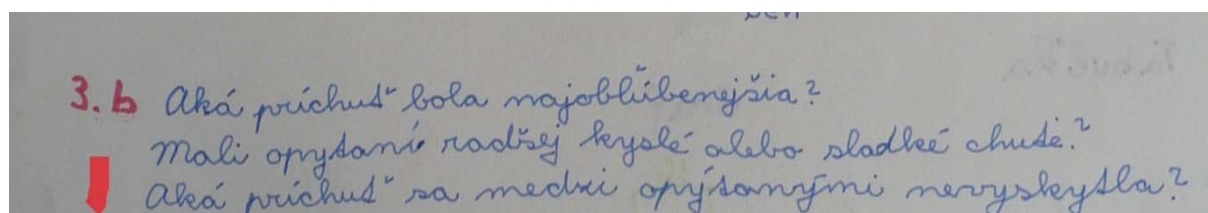 3. b Aká príchuť bola najobľúbenejšia?
Mali opytaní radšej kyslé alebo sladké chute?
Aká príchuť sa medzi opýtanými nevyskytla?